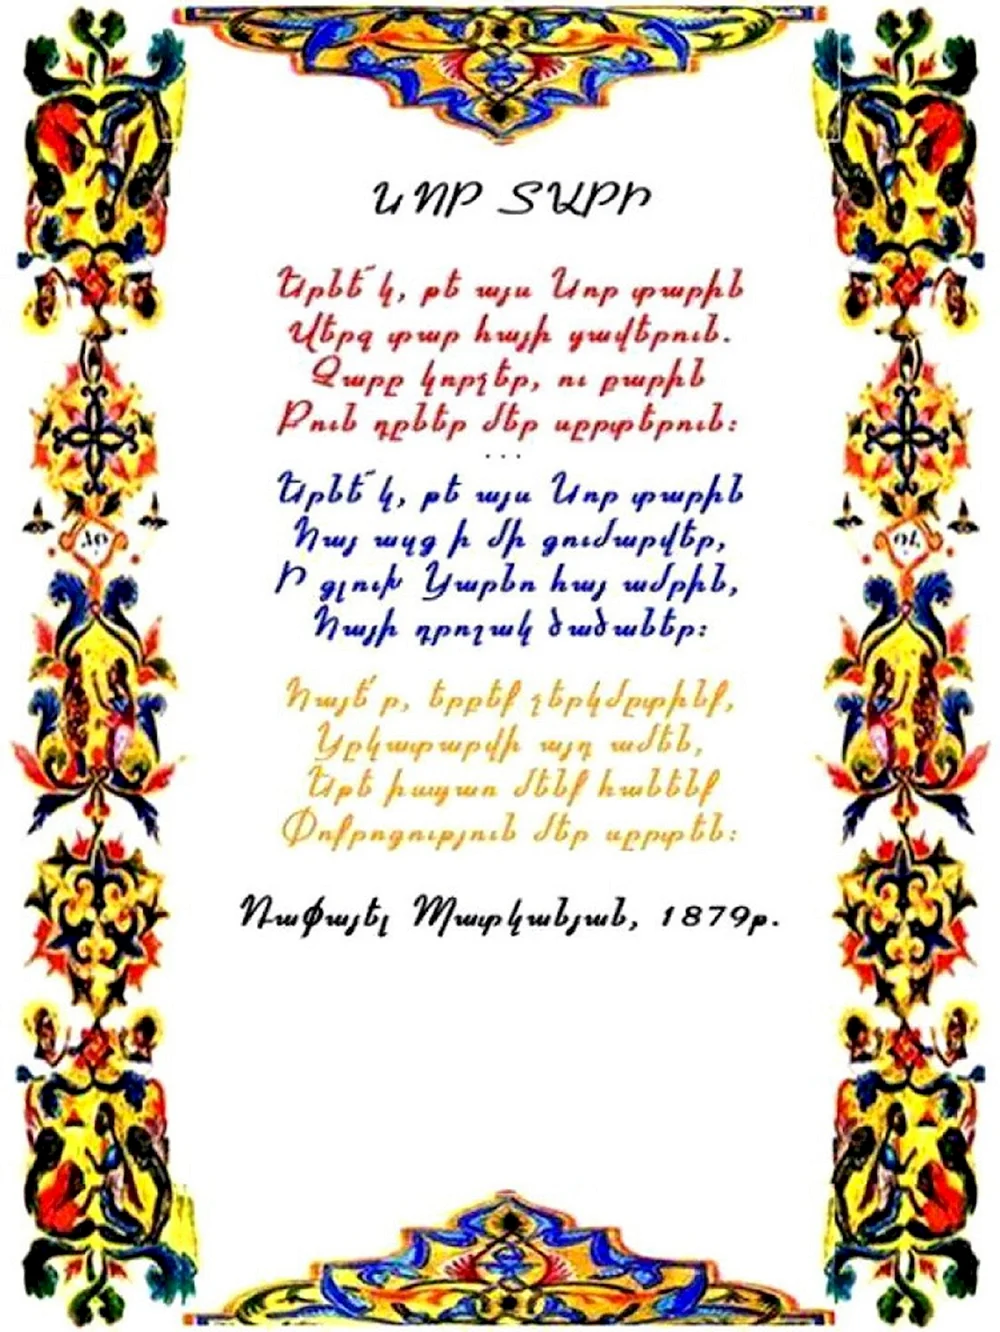 ՆՈՐ ՏԱՐԻ
Երնե՜կ, թե այս Նոր տարին
Վերջ տար հայի ցավերուն.
Չարը կորչեր, ու բարին
Բուն դըներ մեր սըրտերուն:
...
Երնե՜կ, թե այս Նոր տարին
Հայ ազգ ի մի գումարվեր,
Ի գլուխ Հայի ամրին,
Հայի դրոշակ ծածաներ:
Հայե՛ր, երբեք չերկմըտինք,
Կըկատարվի այդ ամեն,
Եթե իսպառ մենք հանենք
Փոքրոգություն մեր սըրտեն:
Ռափայել Պատկանյան, 1879թ.